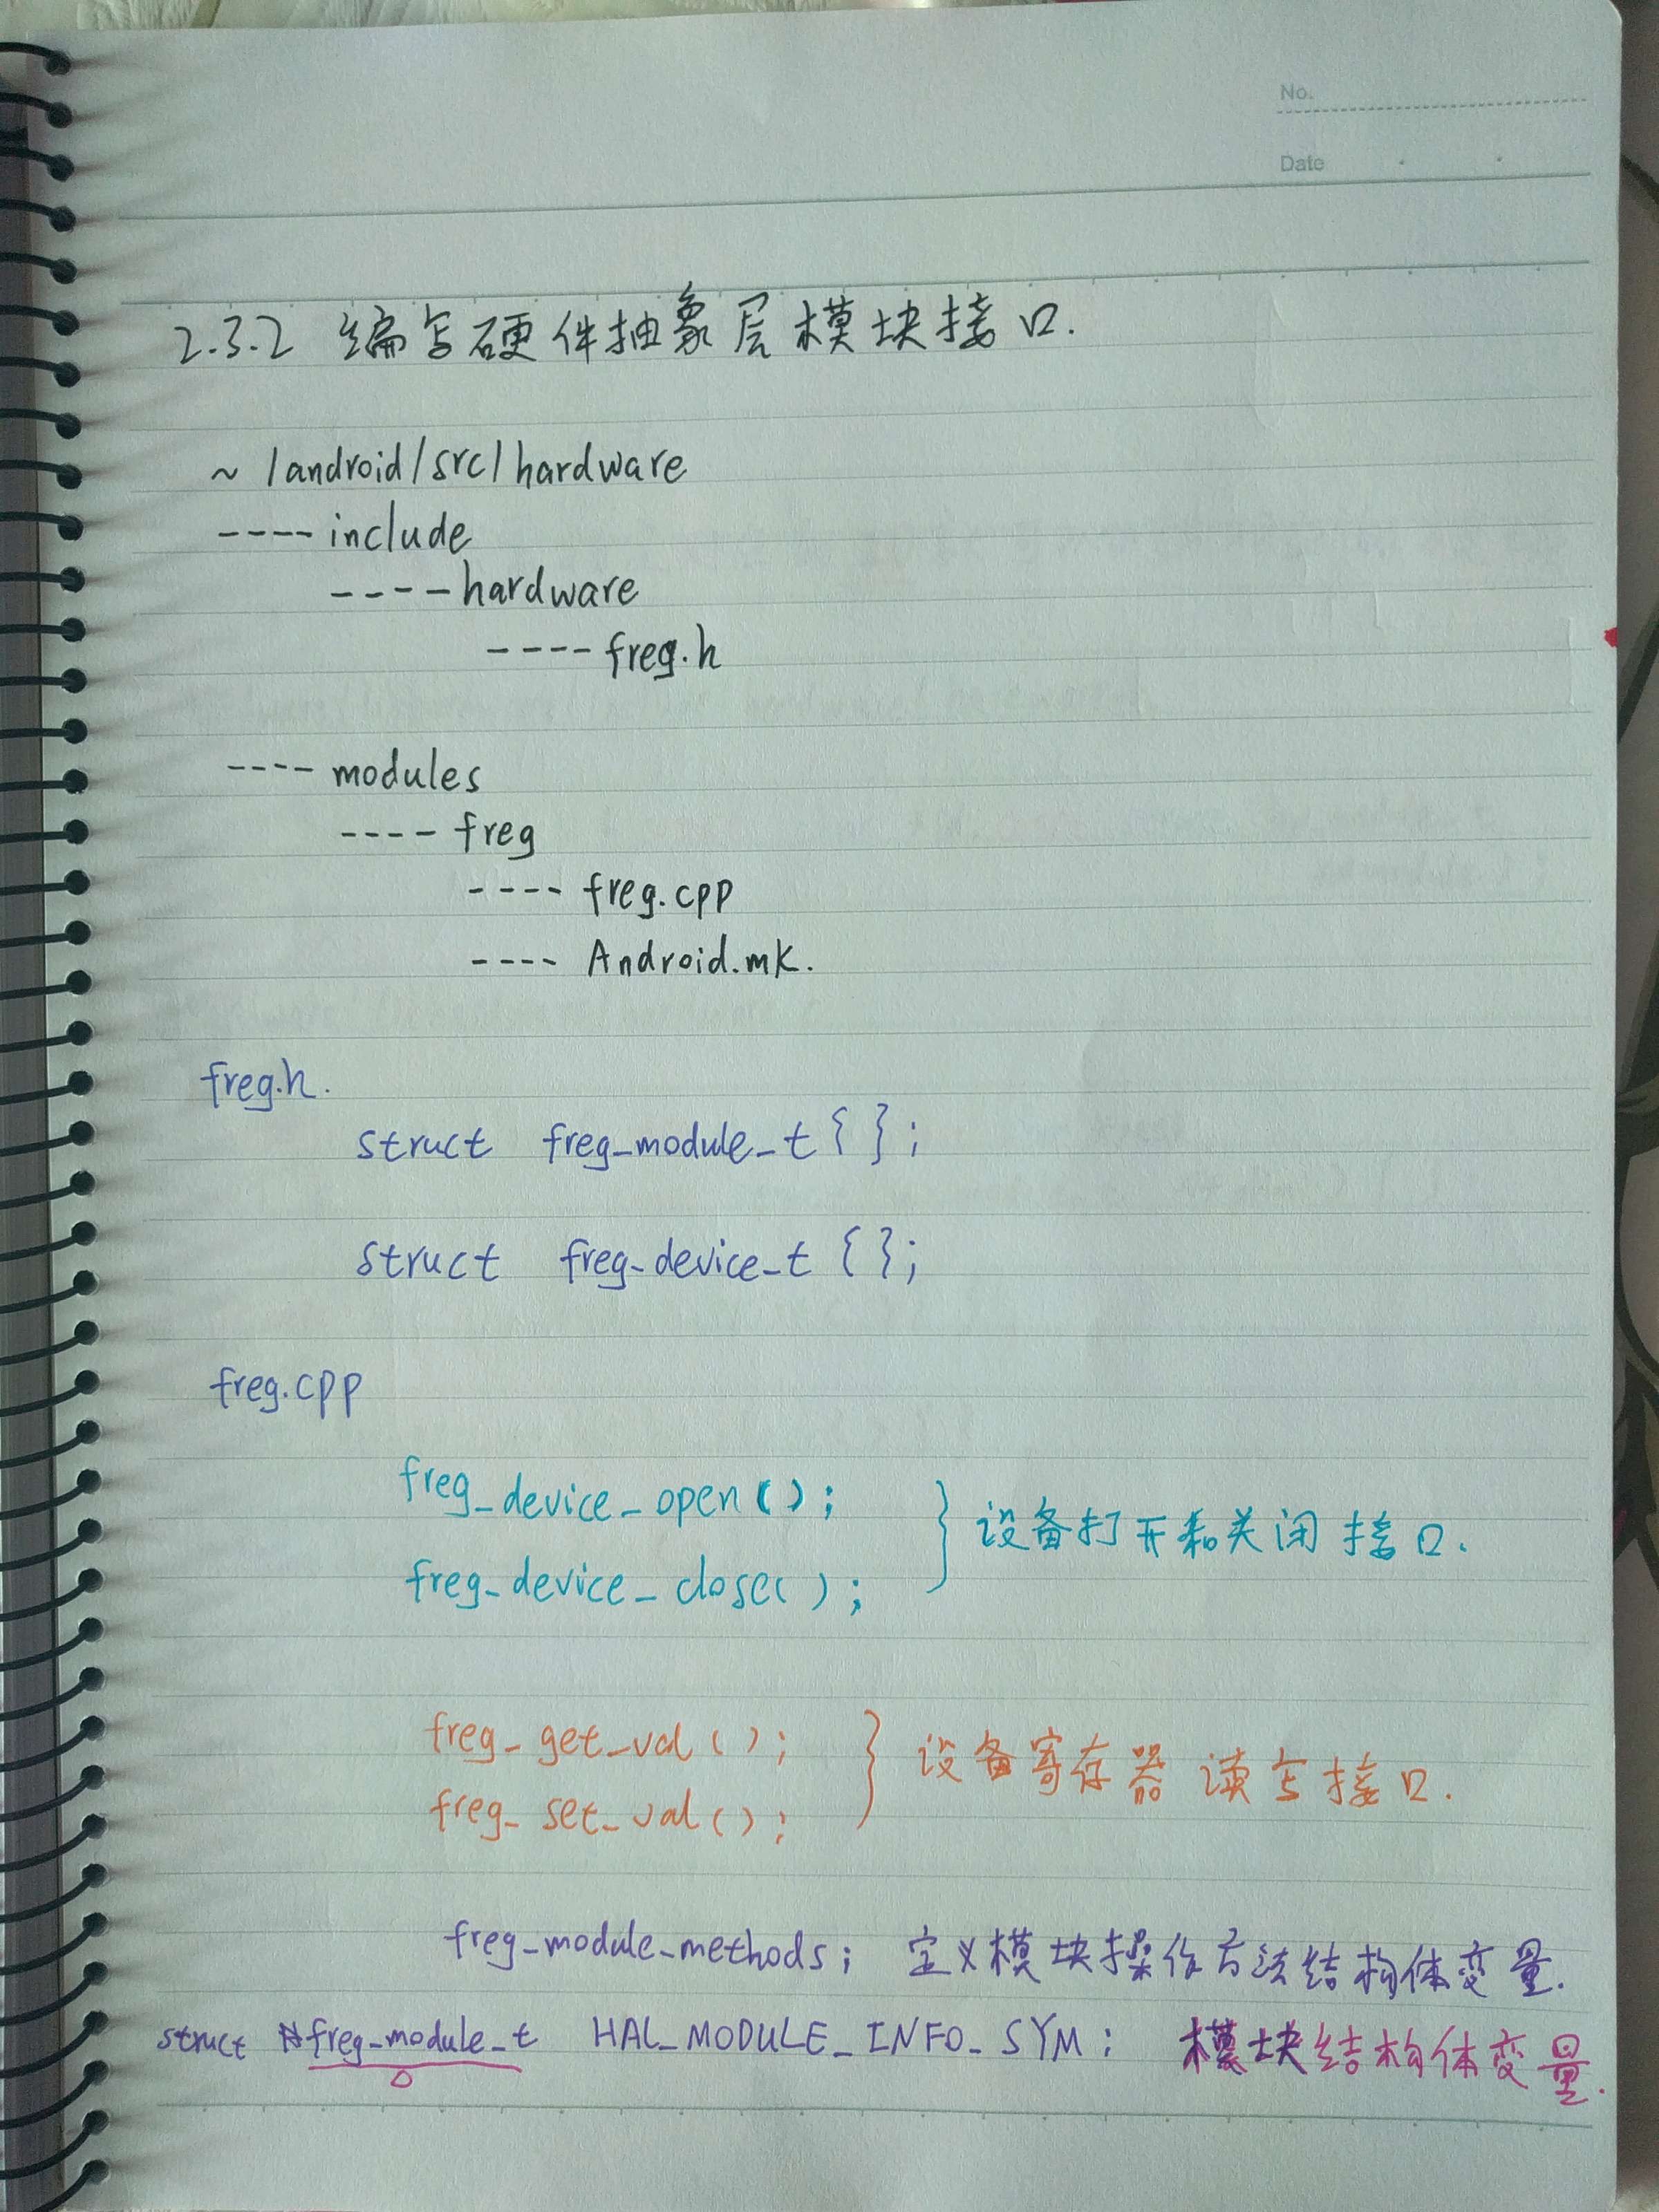 No.
Date
2.3.2 编写硬件抽象层模块接口.
~ /android/src/hardware
---- include
---- hardware
---- freg.h
---- modules
---- freg
---- freg.cpp
---- Android.mk.
freg.h.
struct freg_module_t { };
struct freg_device_t { };
freg.cpp
freg_device_open ( ); } 设备打开和关闭接口.
freg_device_close( );
freg_get_val ( ); } 设备寄存器读写接口.
freg_set_val ( );
freg_module_methods; 定义模块操作方法结构体变量.
struct freg_module_t HAL_MODULE_INFO_SYM: 模块结构体变量.